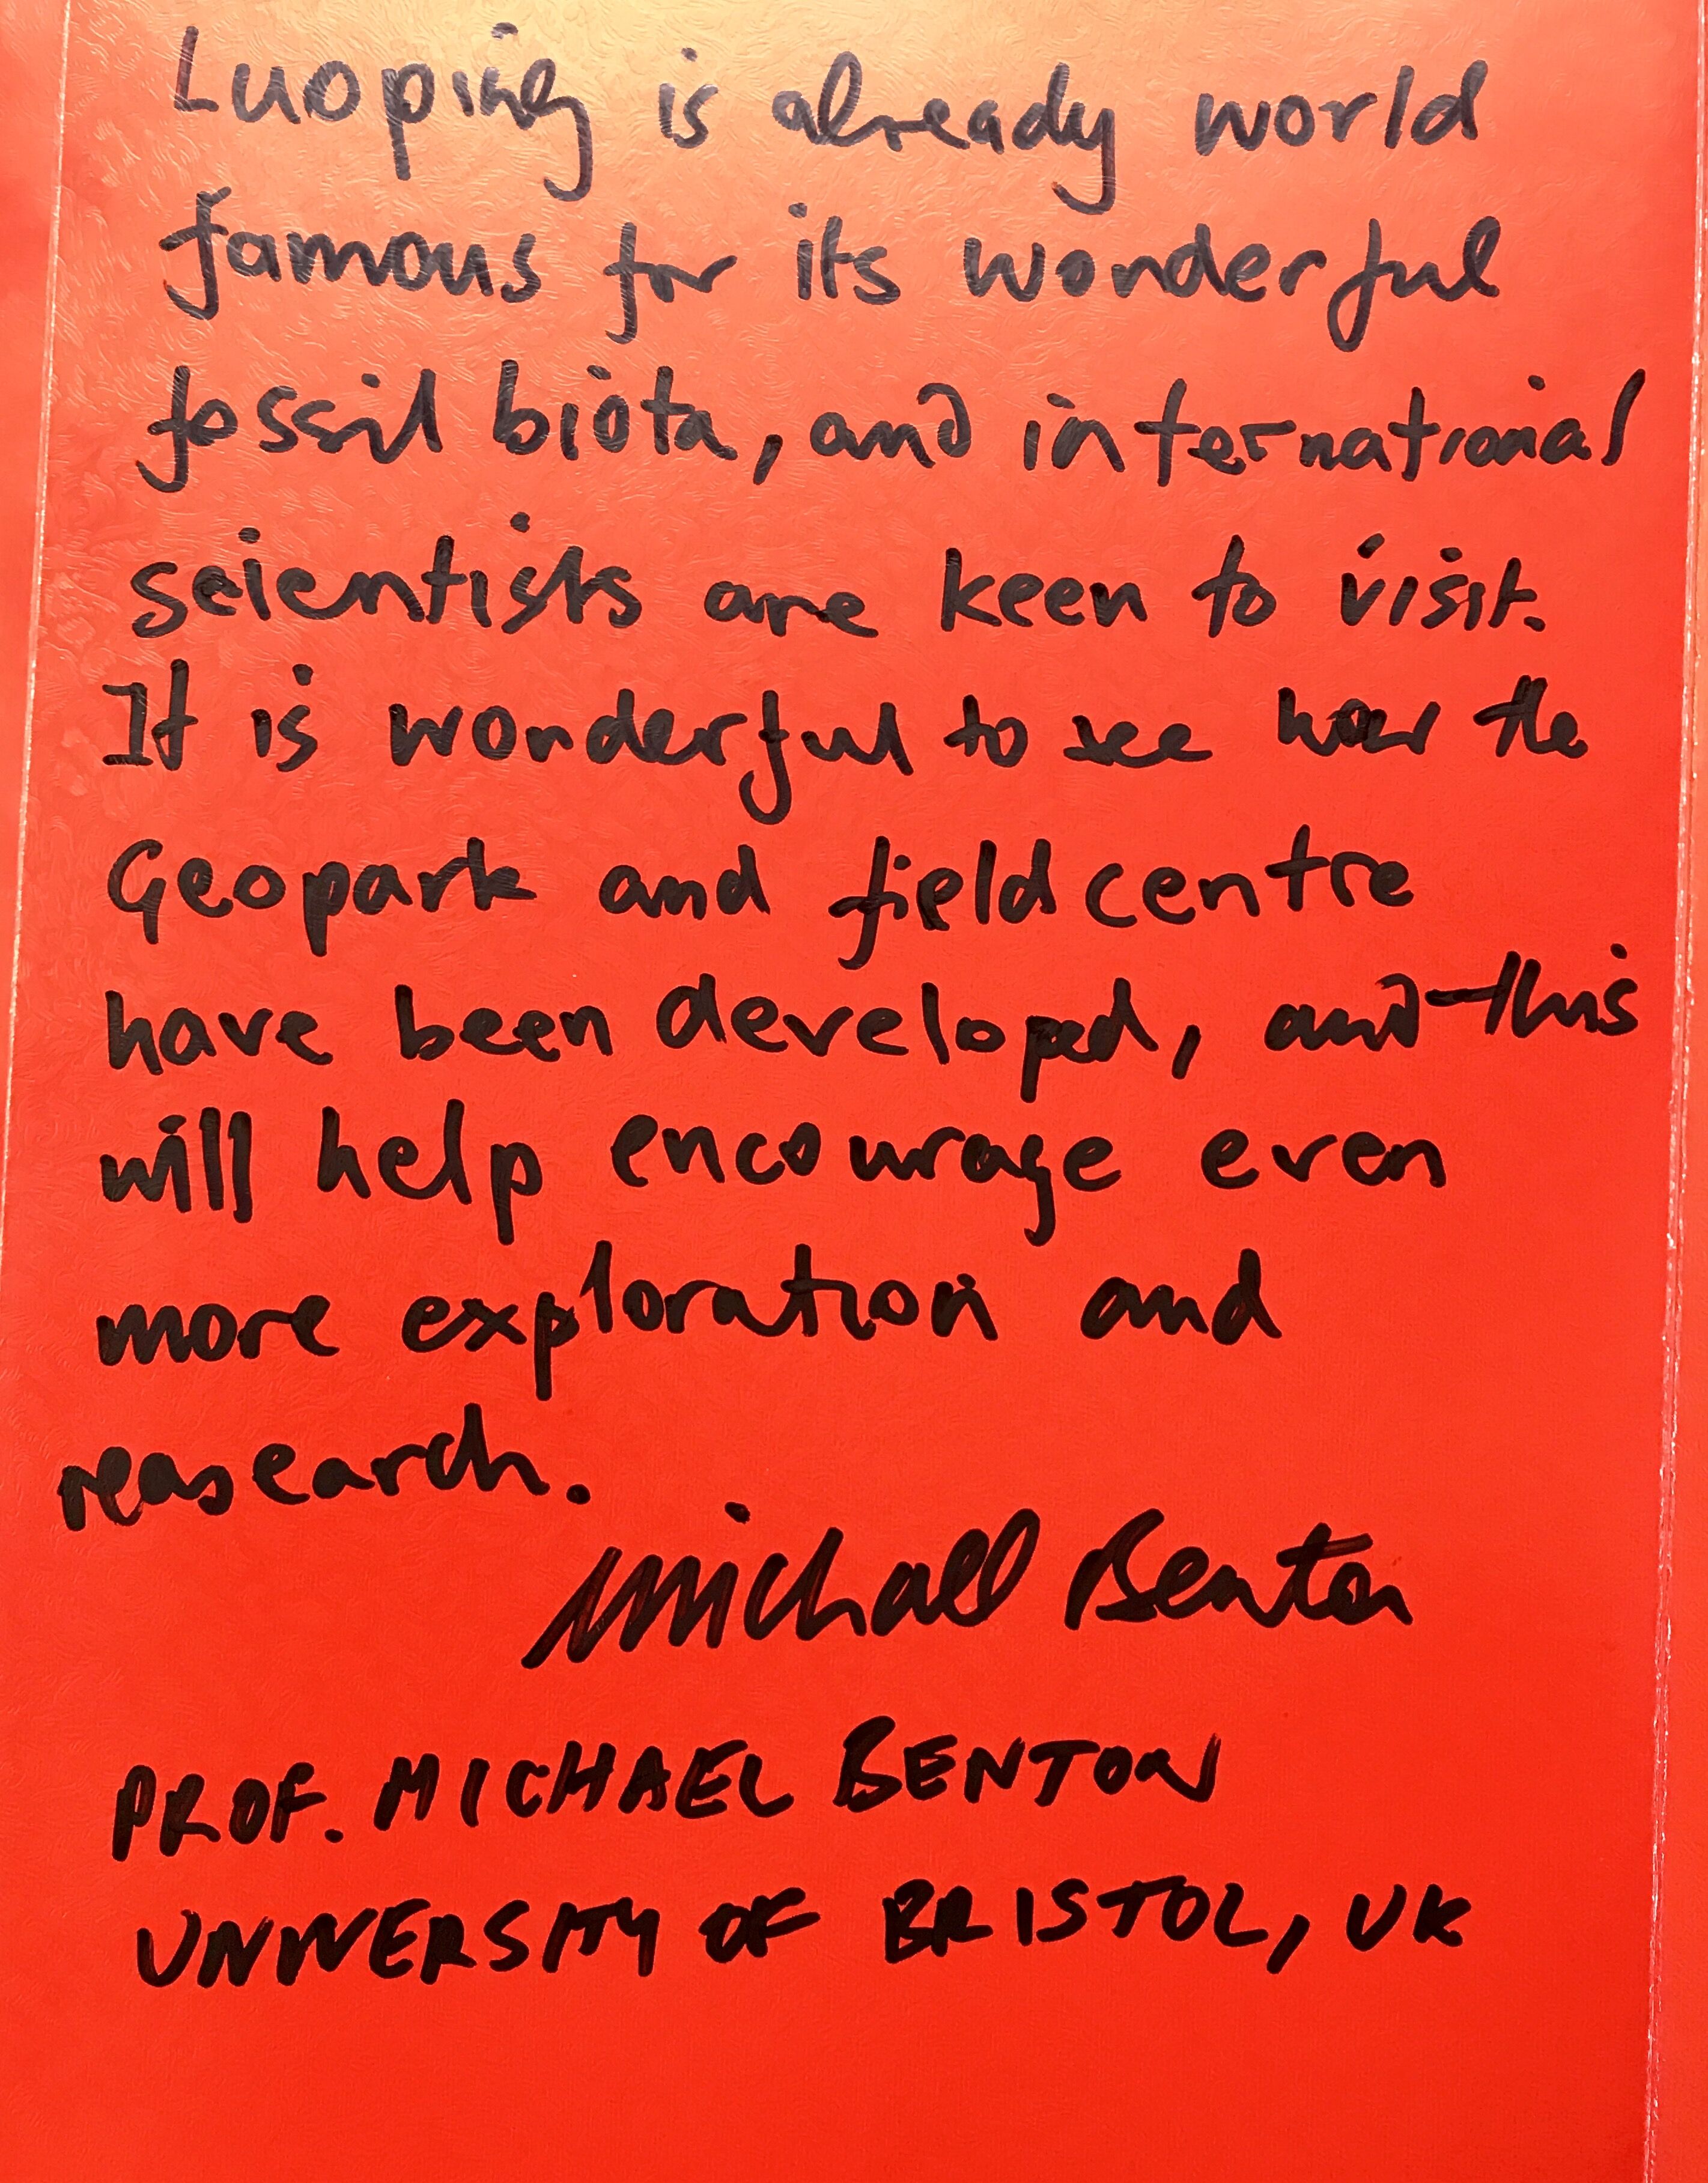 Luoping is already world
famous for its wonderful
fossil biota, and international
scientists are keen to visit.
It is wonderful to see how the
Geopark and field centre
have been developed, and this
will help encourage even
more exploration and
reasearch.
Michael Benton
PROF. MICHAEL BENTON
UNIVERSITY OF BRISTOL, UK